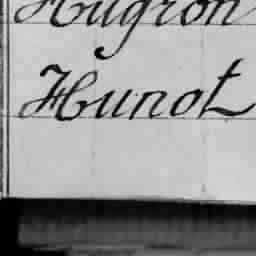 Hugron
Hunot